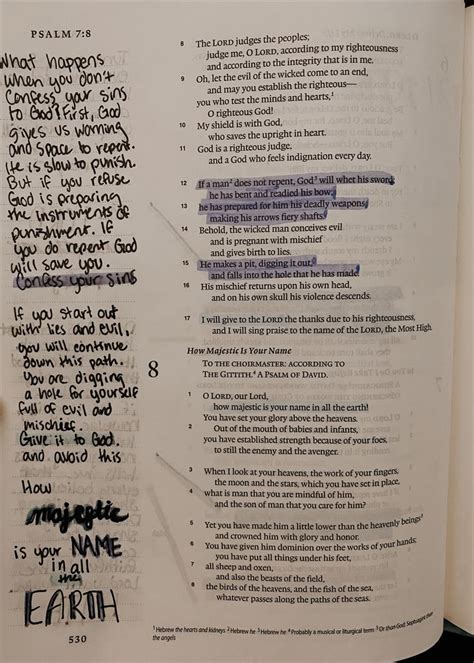 PSALM 7:8
What happens
when you don't
Confess your sins
to God? First, God
gives us warning
and space to repent.
He is slow to punish.
But if you refuse
God is preparing
the instruments of
punishment. If
you do repent God
will save you.
Confess your sins
If you start out
with lies and evil,
you will continue
down this path.
You are digging
a hole for yourself
full of evil and
mischief.
Give it to God.
and avoid this
How
majestic
is your NAME
in all
the
EARTH
530
8 The LORD judges the peoples;
judge me, O LORD, according to my righteousness
and according to the integrity that is in me.
9 Oh, let the evil of the wicked come to an end,
and may you establish the righteous—
you who test the minds and hearts,1
O righteous God!
10 My shield is with God,
who saves the upright in heart.
11 God is a righteous judge,
and a God who feels indignation every day.
12 If a man2 does not repent, God3 will whet his sword;
he has bent and readied his bow;
13 he has prepared for him his deadly weapons,
making his arrows fiery shafts.
14 Behold, the wicked man conceives evil
and is pregnant with mischief
and gives birth to lies.
15 He makes a pit, digging it out,
and falls into the hole that he has made.
16 His mischief returns upon his own head,
and on his own skull his violence descends.
17 I will give to the LORD the thanks due to his righteousness,
and I will sing praise to the name of the LORD, the Most High.
How Majestic Is Your Name
8 TO THE CHOIRMASTER: ACCORDING TO
THE GITTITH.4 A PSALM OF DAVID.
1 O LORD, our Lord,
how majestic is your name in all the earth!
You have set your glory above the heavens.
2 Out of the mouth of babies and infants,
you have established strength because of your foes,
to still the enemy and the avenger.
3 When I look at your heavens, the work of your fingers,
the moon and the stars, which you have set in place,
4 what is man that you are mindful of him,
and the son of man that you care for him?
5 Yet you have made him a little lower than the heavenly beings5
and crowned him with glory and honor.
6 You have given him dominion over the works of your hands;
you have put all things under his feet,
7 all sheep and oxen,
and also the beasts of the field,
8 the birds of the heavens, and the fish of the sea,
whatever passes along the paths of the seas.
1 Hebrew the hearts and kidneys 2 Hebrew he 3 Hebrew he 4 Probably a musical or liturgical term 5 Or than God; Septuagint than
the angels